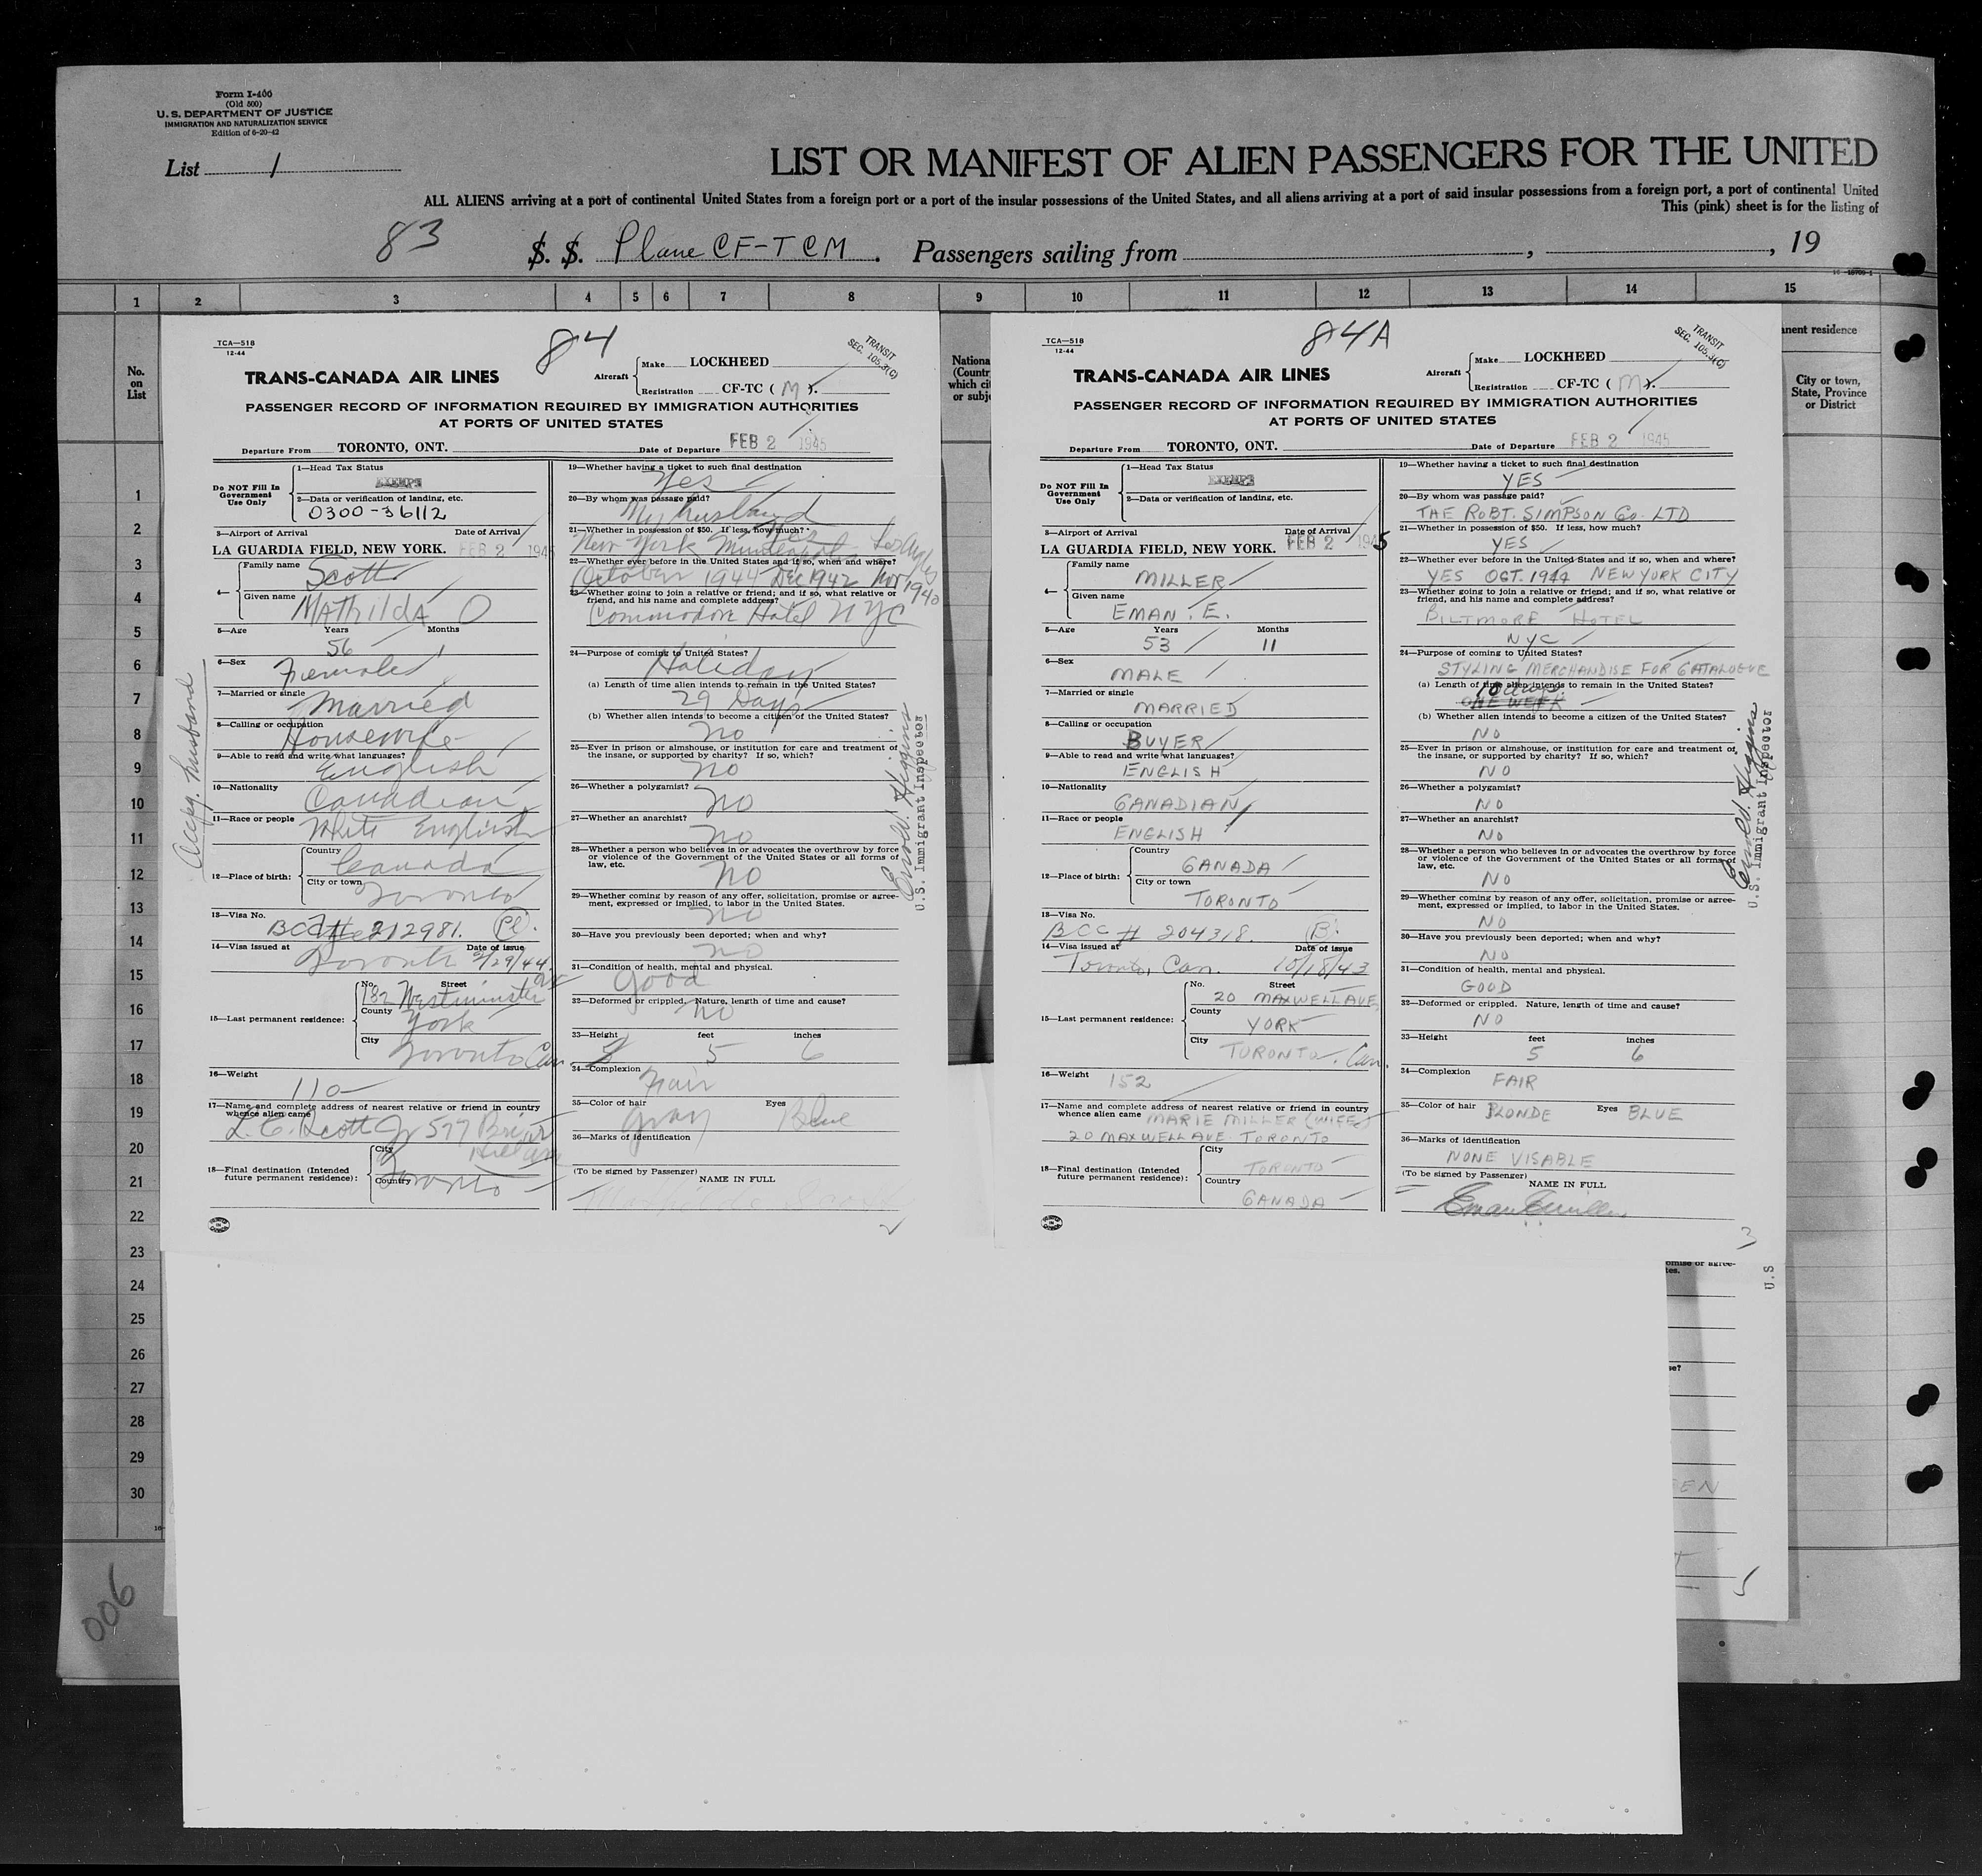 Form I-400
(Old 500)
U. S. DEPARTMENT OF JUSTICE
IMMIGRATION AND NATURALIZATION SERVICE
Edition of 6-20-42
List 1
LIST OR MANIFEST OF ALIEN PASSENGERS FOR THE UNITED
ALL ALIENS arriving at a port of continental United States from a foreign port or a port of the insular possessions of the United States, and all aliens arriving at a port of said insular possessions from a foreign port, a port of continental United
This (pink) sheet is for the listing of
83 S. S. Plane CF-TCM. Passengers sailing from , , 19
1 2 3 4 5 6 7 8 9 10 11 12 13 14 15
No.
on
List
1
2
3
4
5
6
7
8
9
10
11
12
13
14
15
16
17
18
19
20
21
22
23
24
25
26
27
28
29
30
006
Accpg. husband
84
TCA—518
12-44
TRANSIT
SEC. 105.3(C)
TRANS-CANADA AIR LINES
Aircraft
Make LOCKHEED
Registration CF-TC ( M ).
PASSENGER RECORD OF INFORMATION REQUIRED BY IMMIGRATION AUTHORITIES
AT PORTS OF UNITED STATES
Departure From TORONTO, ONT. Date of Departure FEB 2 1945
Do NOT Fill In
Government
Use Only
1—Head Tax Status
EXEMPT
2—Data or verification of landing, etc.
0300-36112
3—Airport of Arrival Date of Arrival
LA GUARDIA FIELD, NEW YORK. FEB 2 1945
4—
Family name
Scott
Given name
MAThildA O
5—Age Years Months
56
6—Sex
Female
7—Married or single
Married
8—Calling or occupation
Housewife
9—Able to read and write what languages?
English
10—Nationality
Canadian
11—Race or people
White English
12—Place of birth:
Country
Canada
City or town
Toronto
13—Visa No.
BCC# 212981.
14—Visa issued at Date of issue
Toronto /29/44.
15—Last permanent residence:
No. Street
182 Westminster Ave
County
York
City
Toronto Can
16—Weight
110
17—Name and complete address of nearest relative or friend in country
whence alien came
L. C. Scott Jr 577 Briar
Hill Ave
18—Final destination (Intended
future permanent residence):
City
Country
Toronto
19—Whether having a ticket to such final destination
Yes
20—By whom was passage paid?
My husband
21—Whether in possession of $50. If less, how much?
Yes
New York Minneapolis Los Angles
22—Whether ever before in the United States and if so, when and where?
October 1944 Dec 1942 Nov 1940
23—Whether going to join a relative or friend; and if so, what relative or
friend, and his name and complete address?
Commodore Hotel NYC
24—Purpose of coming to United States?
Holiday
(a) Length of time alien intends to remain in the United States?
29 Days
(b) Whether alien intends to become a citizen of the United States?
no
25—Ever in prison or almshouse, or institution for care and treatment of
the insane, or supported by charity? If so, which?
no
26—Whether a polygamist?
no
27—Whether an anarchist?
no
28—Whether a person who believes in or advocates the overthrow by force
or violence of the Government of the United States or all forms of
law, etc.
no
29—Whether coming by reason of any offer, solicitation, promise or agree-
ment, expressed or implied, to labor in the United States.
no
30—Have you previously been deported; when and why?
no
31—Condition of health, mental and physical.
good
32—Deformed or crippled. Nature, length of time and cause?
no
33—Height feet inches
5 6
34—Complexion
Fair
35—Color of hair Eyes
Gray Blue
36—Marks of identification
(To be signed by Passenger)
NAME IN FULL
Mathilda Scott
2
U.S. Immigrant Inspector
Nationa
(Countr
which cit
or subje
84A
TCA—518
12-44
TRANSIT
SEC. 105.3(C)
TRANS-CANADA AIR LINES
Aircraft
Make LOCKHEED
Registration CF-TC ( M ).
PASSENGER RECORD OF INFORMATION REQUIRED BY IMMIGRATION AUTHORITIES
AT PORTS OF UNITED STATES
Departure From TORONTO, ONT. Date of Departure FEB 2 1945
Do NOT Fill In
Government
Use Only
1—Head Tax Status
EXEMPT
2—Data or verification of landing, etc.
3—Airport of Arrival Date of Arrival
LA GUARDIA FIELD, NEW YORK. FEB 2 1945
4—
Family name
MILLER
Given name
EMAN. E.
5—Age Years Months
53 11
6—Sex
MALE
7—Married or single
MARRIED
8—Calling or occupation
BUYER
9—Able to read and write what languages?
ENGLISH
10—Nationality
CANADIAN
11—Race or people
ENGLISH
12—Place of birth:
Country
CANADA
City or town
TORONTO
13—Visa No.
BCC # 204318. B.
14—Visa issued at Date of issue
Toronto, Can. 10/18/43
15—Last permanent residence:
No. Street
20 MAXWELL AVE
County
YORK
City
TORONTO. Can.
16—Weight
152
17—Name and complete address of nearest relative or friend in country
whence alien came
MARIE MILLER (WIFE)
20 MAXWELL AVE. TORONTO
18—Final destination (Intended
future permanent residence):
City
TORONTO
Country
CANADA
19—Whether having a ticket to such final destination
YES
20—By whom was passage paid?
THE ROBT. SIMPSON Co. LTD
21—Whether in possession of $50. If less, how much?
YES
22—Whether ever before in the United States and if so, when and where?
YES OCT. 1944 NEW YORK CITY
23—Whether going to join a relative or friend; and if so, what relative or
friend, and his name and complete address?
BILTMORE HOTEL
NYC
24—Purpose of coming to United States?
STYLING MERCHANDISE FOR CATALOGUE
(a) Length of time alien intends to remain in the United States?
10 days
ONE WEEK
(b) Whether alien intends to become a citizen of the United States?
NO
25—Ever in prison or almshouse, or institution for care and treatment of
the insane, or supported by charity? If so, which?
NO
26—Whether a polygamist?
NO
27—Whether an anarchist?
NO
28—Whether a person who believes in or advocates the overthrow by force
or violence of the Government of the United States or all forms of
law, etc.
NO
29—Whether coming by reason of any offer, solicitation, promise or agree-
ment, expressed or implied, to labor in the United States.
NO
30—Have you previously been deported; when and why?
NO
31—Condition of health, mental and physical.
GOOD
32—Deformed or crippled. Nature, length of time and cause?
NO
33—Height feet inches
5 6
34—Complexion
FAIR
35—Color of hair BLONDE Eyes BLUE
36—Marks of identification
NONE VISABLE
(To be signed by Passenger)
NAME IN FULL
Eman E Miller
U.S. Immigrant Inspector
nent residence
City or town,
State, Province
or District
U.S